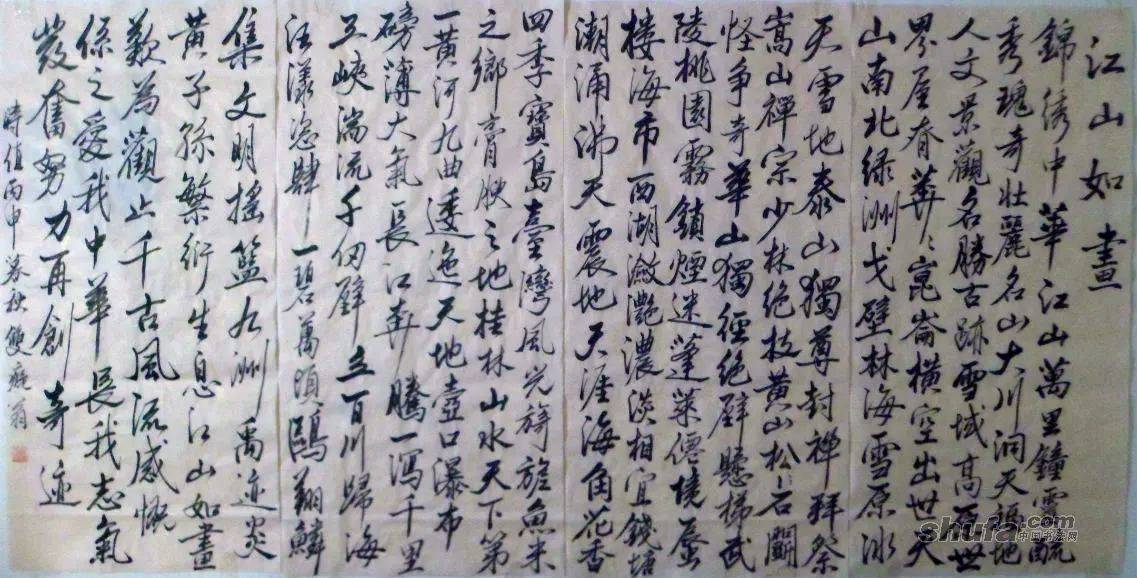 江山如畫
錦綉中華江山萬里鐘靈毓
秀瑰奇壯麗名山大川洞天福地
人文景觀名勝古跡雪域高原世
界屋脊莽莽崑崙橫空出世天
山南北绿洲戈壁林海雪原冰
天雪地泰山獨尊封禪拜祭
嵩山禪宗少林绝技黄山松石鬭
怪争奇華山獨徑绝壁懸梯武
陵桃園霧鎖煙迷蓬萊僊境蜃
楼海市西湖潋滟濃淡相宜錢塘
潮涌沸天震地天涯海角花香
四季寶島臺灣風光旖旎魚米
之鄉膏腴之地桂林山水天下第
一黄河九曲逶迤天地壺口瀑布
磅薄大氣長江奔騰一瀉千里
三峡湍流千仞壁立百川歸海
汪漾恣肆一碧萬頃鷗翔鱗
集文明摇籃九洲禹迹炎
黄子孫繁衍生息江山如畫
歎為觀止千古風流感慨
係之爱我中華長我志氣
發奮努力再創奇迹
時值丙申暮秋雙癡翁
shufa.com
中国书法网